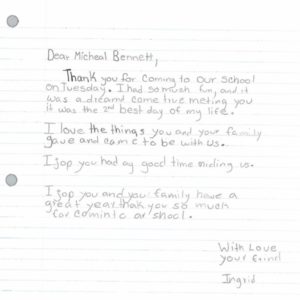 Dear Micheal Bennett,
Thank you for coming to our school
on Tuesday. I had so much fun, and it
was a dreamt come true meting you
it was the 2nd best day of my life.
I love the things you and your family
gave and came to be with us.
I jop you had ay good time miding us.
I jop you and your family have a
great year thank you so much
for comintc ar shool.
With Love,
your friend
Ingrid